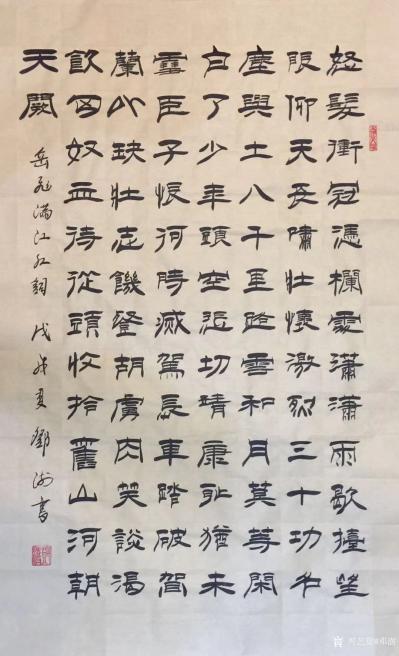 怒髮衝冠憑欄處瀟瀟雨歇擡望
眼仰天長嘯壯懷激烈三十功名
塵與土八千里路雲和月莫等閑
白了少年頭空悲切靖康恥猶未
雪臣子恨何時滅駕長車踏破賀
蘭山缺壯志饑餐胡虜肉笑談渴
飲匈奴血待從頭收拾舊山河朝
天闕
岳飛滿江紅詞 戊戌夏 鄧 書